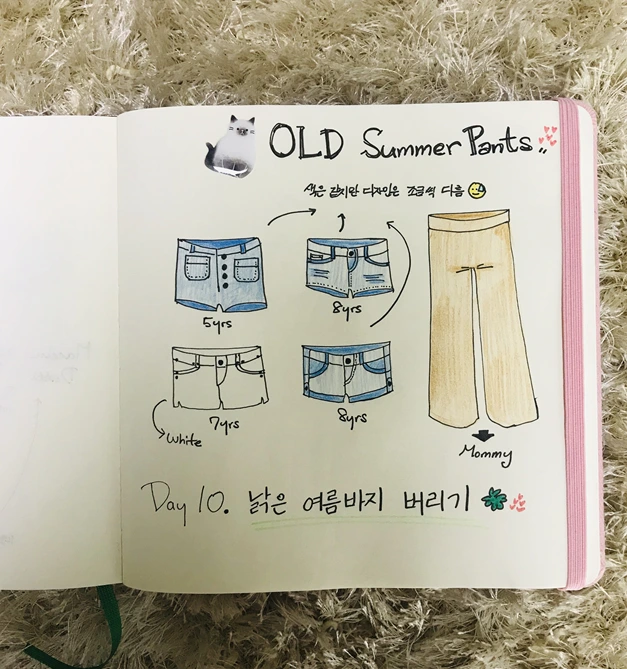 OLD Summer Pants..
색은 같지만 디자인은 조금씩 다름
5yrs
8yrs
7yrs
8yrs
White
Mommy
Day 10. 낡은 여름바지 버리기